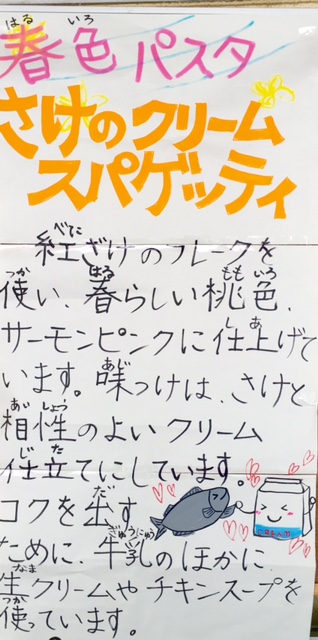 はる いろ
春色パスタ
さけのクリーム
スパゲッティ
べに
紅ざけのフレークを
つか はる ももいろ
使い、春らしい桃色、
し あ
サーモンピンクに仕上げて
あじ
います。味つけは、さけと
あいしょう
相性のよいクリーム
じ た
仕立てにしています。
だ
コクを出す
CREAM
ぎゅうにゅう
ために、牛乳のほかに、
なま
生クリームやチキンスープを
つか
使っています。